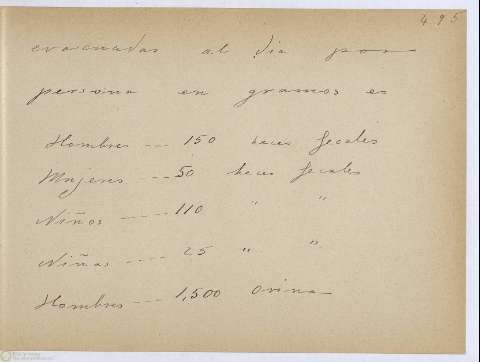 495
evacuadas al dia por
persona en gramos es
Hombres --- 150 heces fecales
Mujeres --- 50 heces fecales
Niños ---- 110 " "
Niñas ---- 25 " "
Hombres --- 1,500 orina